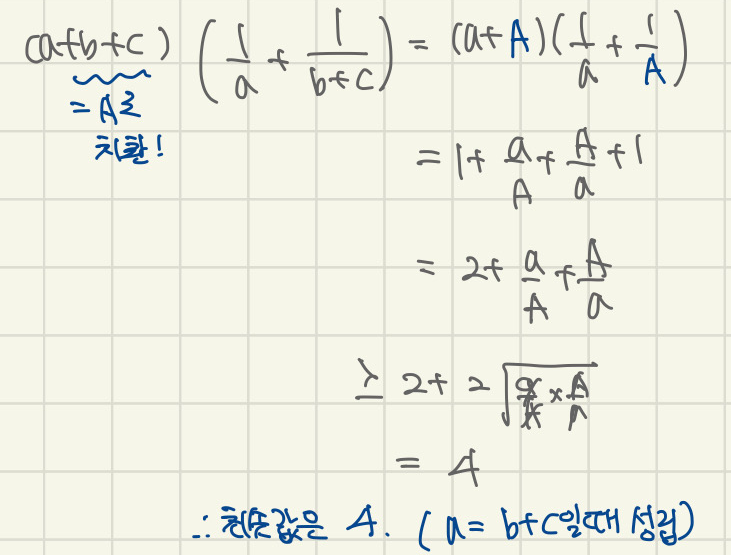 (a+b+c) (1/a + 1/(b+c)) = (a+A)(1/a + 1/A)
= A로
치환!
= 1 + a/A + A/a + 1
= 2 + a/A + A/a
≥ 2 + 2√(a/A × A/a)
= 4
∴ 최솟값은 4. (a = b+c일때 성립)